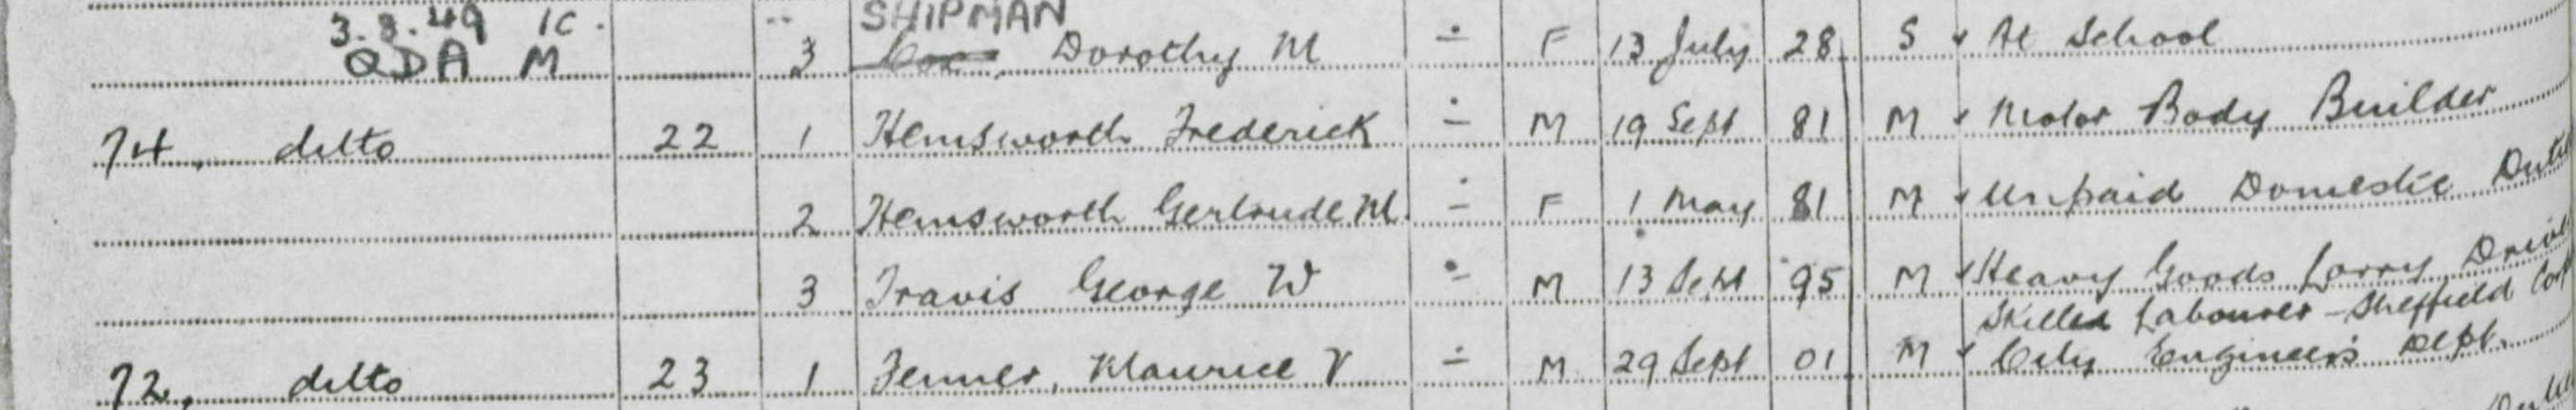 3.3.49 IC. SHIPMAN
QDA M 3 Cox, Dorothy M - F 13 July 28 S At School
74, ditto 22 1 Hemsworth Frederick - M 19 Sept 81 M Motor Body Builder
2 Hemsworth Gertrude M. - F 1 May 81 M Unpaid Domestic
3 Travis George W - M 13 Sept 95 M Heavy Goods Lorry
Skilled Labourer - Sheffield
72, ditto 23 1 Fenner, Maurice V - M 29 Sept 01 M City Engineers Dept.